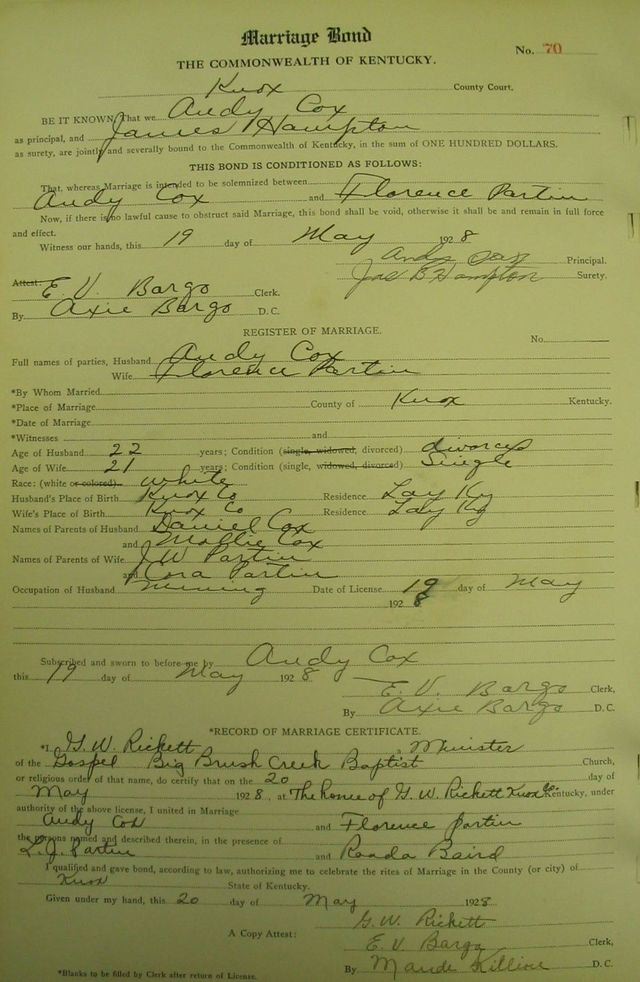 Marriage Bond
No. 70
THE COMMONWEALTH OF KENTUCKY.
Knox County Court.
BE IT KNOWN, That we Andy Cox
as principal, and James Hampton
as surety, are jointly and severally bound to the Commonwealth of Kentucky, in the sum of ONE HUNDRED DOLLARS.
THIS BOND IS CONDITIONED AS FOLLOWS:
That, whereas Marriage is intended to be solemnized between
Andy Cox and Florence Partin
Now, if there is no lawful cause to obstruct said Marriage, this bond shall be void, otherwise it shall be and remain in full force
and effect.
Witness our hands, this 19 day of May 1928
Andy Cox Principal.
Jas B Hampton Surety.
Attest: E. V. Bargo Clerk.
By Axie Bargo D. C.
REGISTER OF MARRIAGE.
No.
Full names of parties, Husband Andy Cox
Wife Florence Partin
*By Whom Married
*Place of Marriage County of Knox Kentucky.
*Date of Marriage
*Witnesses and
Age of Husband 22 years; Condition (single, widowed, divorced) divorced
Age of Wife 21 years; Condition (single, widowed, divorced) Single
Race: (white or colored) white
Husband's Place of Birth Knox Co Residence Lay Ky
Wife's Place of Birth Knox Co Residence Lay Ky
Names of Parents of Husband Daniel Cox
and Mollie Cox
Names of Parents of Wife J. W. Partin
and Cora Partin
Occupation of Husband mining Date of License 19 day of May
1928
Subscribed and sworn to before me by Andy Cox
this 19 day of May 1928
E. V. Bargo Clerk,
By Axie Bargo D. C.
*RECORD OF MARRIAGE CERTIFICATE.
*I, G. W. Rickett, a Minister
of the Gospel Big Brush Creek Baptist Church,
or religious order of that name, do certify that on the 20 day of
May 1928, at The home of G. W. Rickett Knox Co. Kentucky, under
authority of the above license, I united in Marriage
Andy Cox and Florence Partin
the persons named and described therein, in the presence of
L. J. Partin and Baird
I qualified and gave bond, according to law, authorizing me to celebrate the rites of Marriage in the County (or city) of
Knox State of Kentucky.
Given under my hand, this 20 day of May 1928
G. W. Rickett
A Copy Attest: E. V. Bargo Clerk,
By Maude D. C.
*Blanks to be filled by Clerk after return of License.